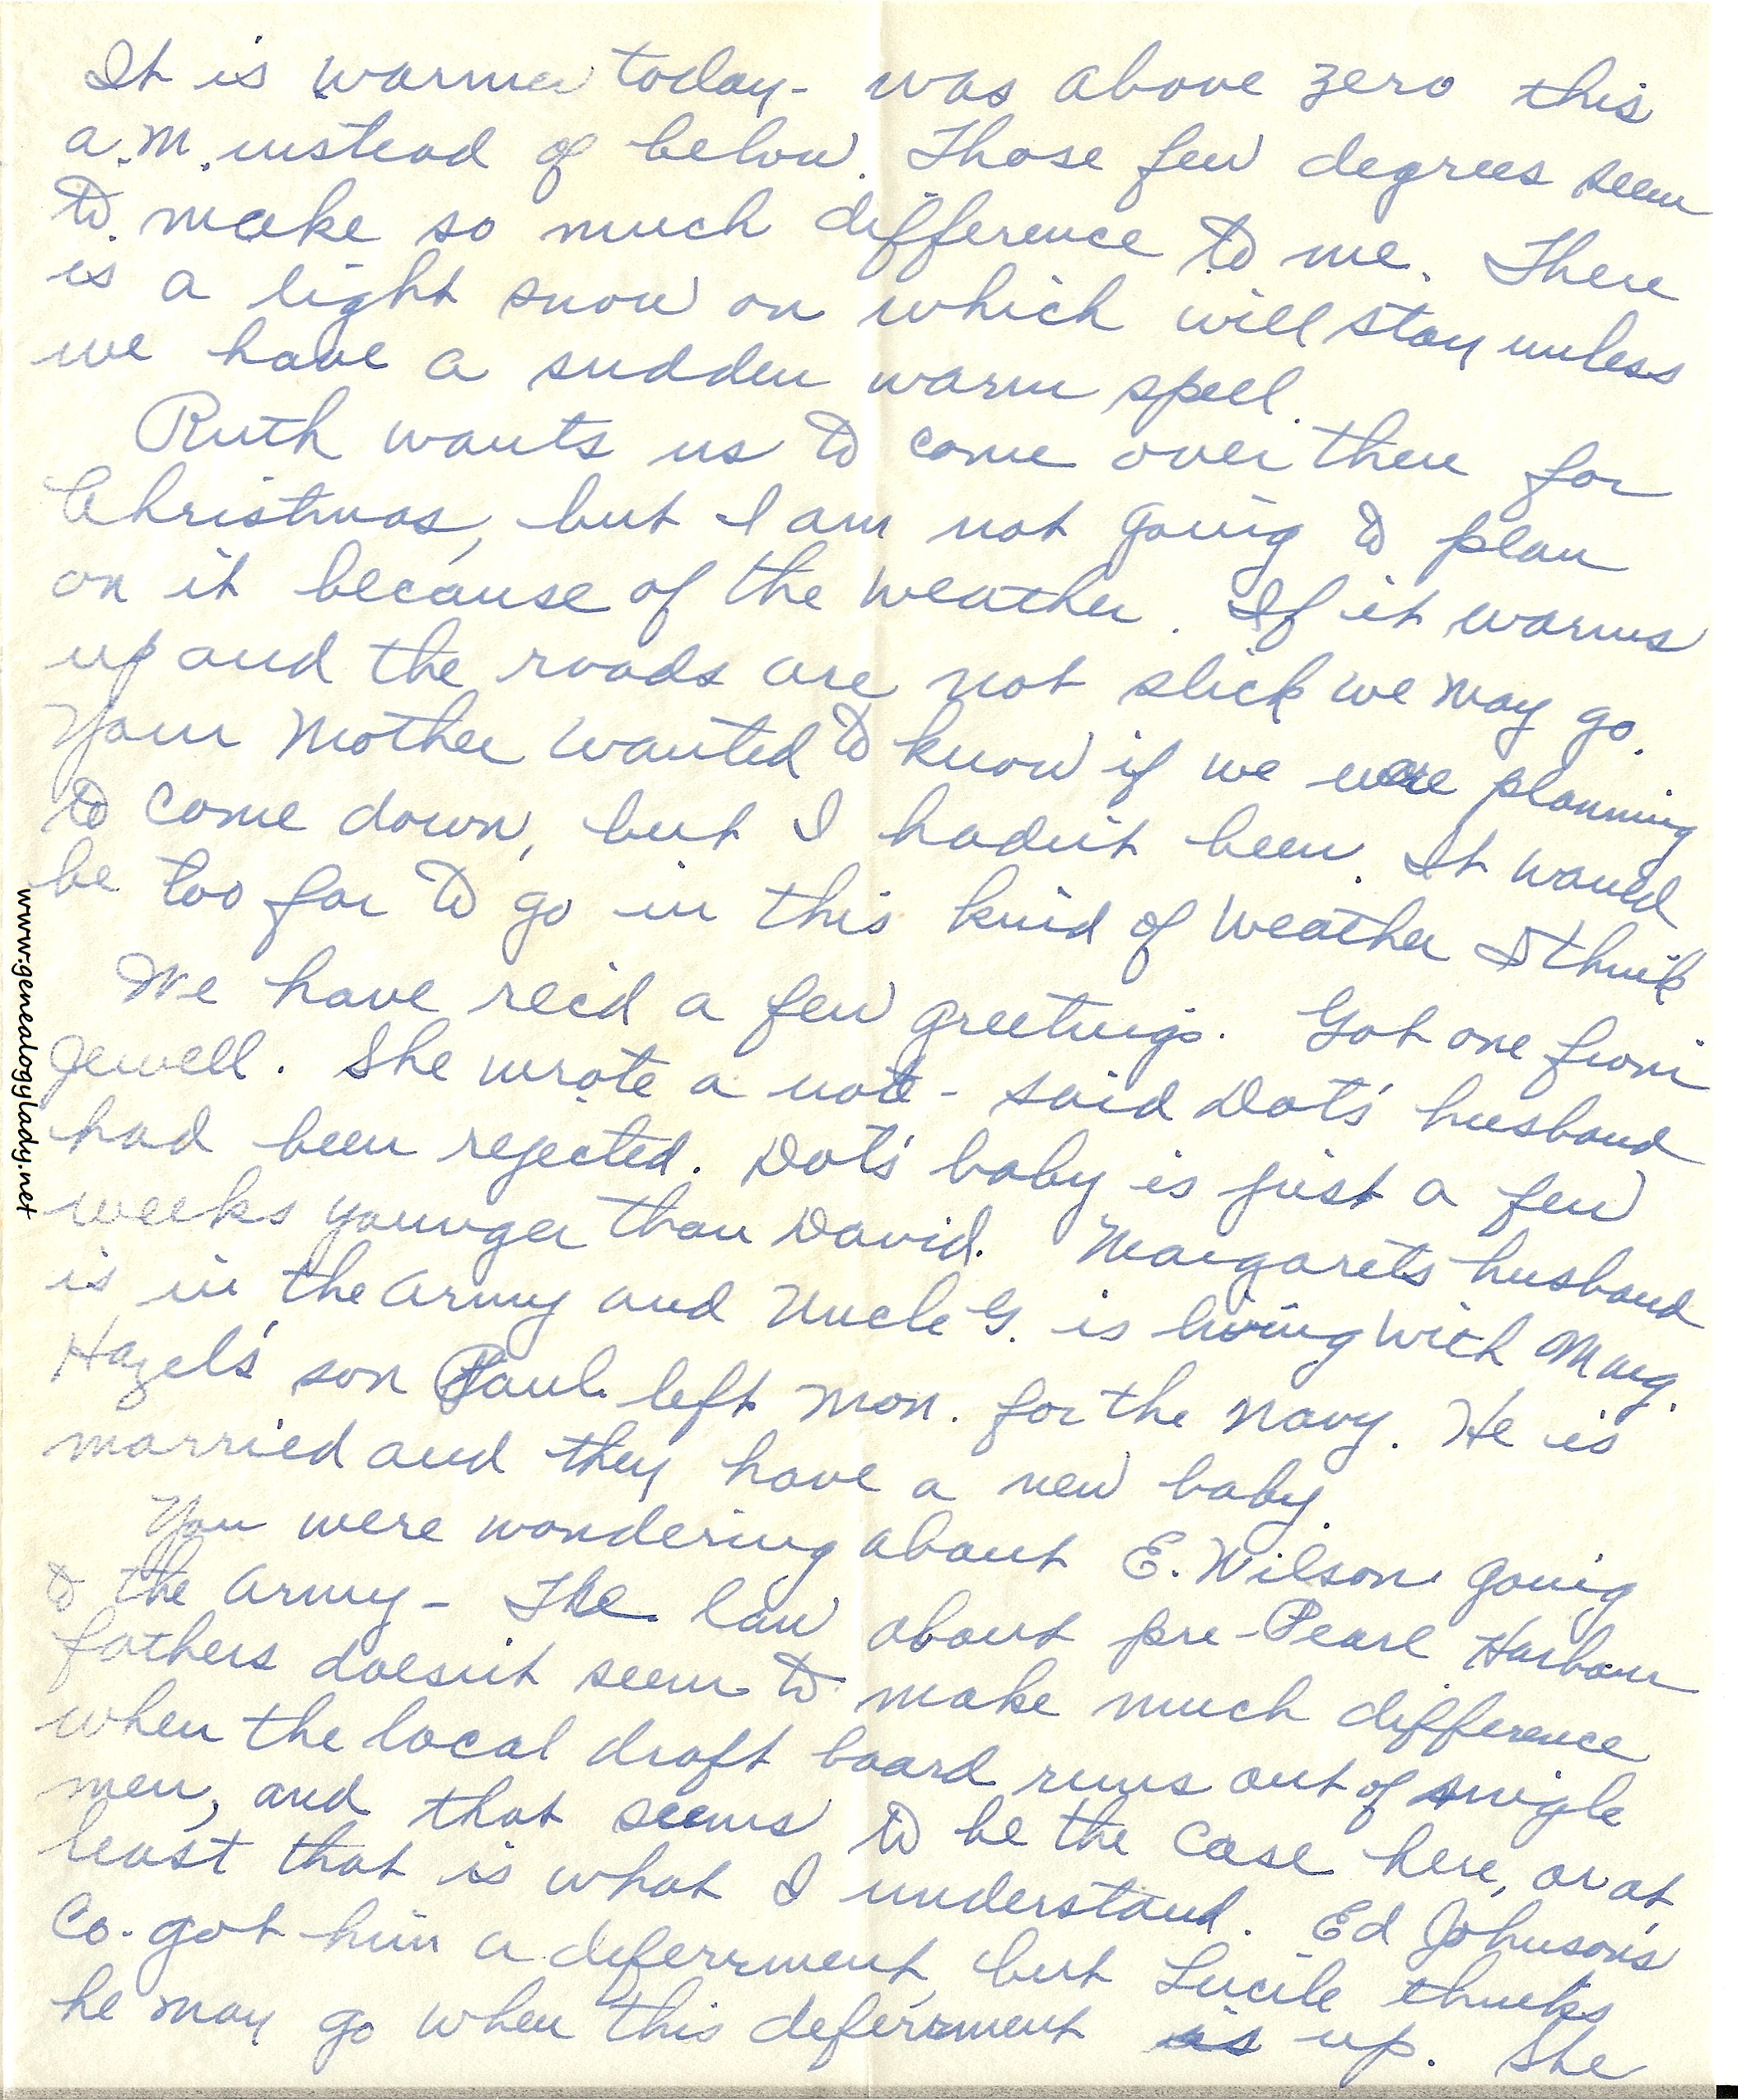 It is warmer today - was above zero this
a.m. instead of below. Those few degrees seem
to make so much difference to me. There
is a light snow on which will stay unless
we have a sudden warm spell.
Ruth wants us to come over there for
Christmas, but I am not going to plan
on it because of the weather. If it warms
up and the roads are not slick we may go.
Your Mother wanted to know if we were planning
to come down, but I hadn't been. It would
be too far to go in this kind of weather I think
We have rec'd a few greetings. Got one from
Jewell. She wrote a note - said Dot's husband
had been rejected. Dot's baby is just a few
weeks younger than David. Margaret's husband
is in the army and Uncle G. is living with Marg.
Hazel's son Paul left Mon. for the Navy. He is
married and they have a new baby.
You were wondering about E. Wilson going
to the army - The law about pre-Pearl Harbour
fathers doesn't seem to make much difference
when the local draft board runs out of single
men, and that seems to be the case here, or at
least that is what I understand. Ed Johnson's
Co. got him a deferrment, but Lucile thinks
he may go when this deferrment is up. She
www.genealogylady.net